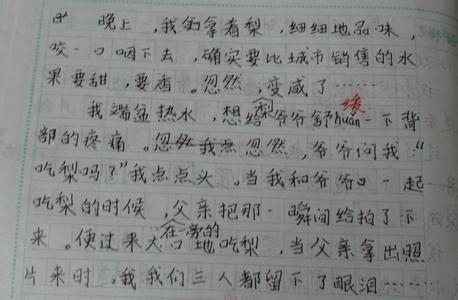 晚上，我们拿着梨，细细地品味，
咬一口咽下去，确实要比城市销售的水
果要甜，要香。忽然，变咸了……
我端盆热水，想给爷爷舒huǎn缓一下背
部的疼痛。忽然，爷爷问我："
吃梨吗？"我点点头。当我和爷爷一起
吃梨的时候，父亲把那一瞬间给拍了下
来。便过来大口地吃梨，在一旁的当父亲拿出照
片来时，我们三人都留下了眼泪……